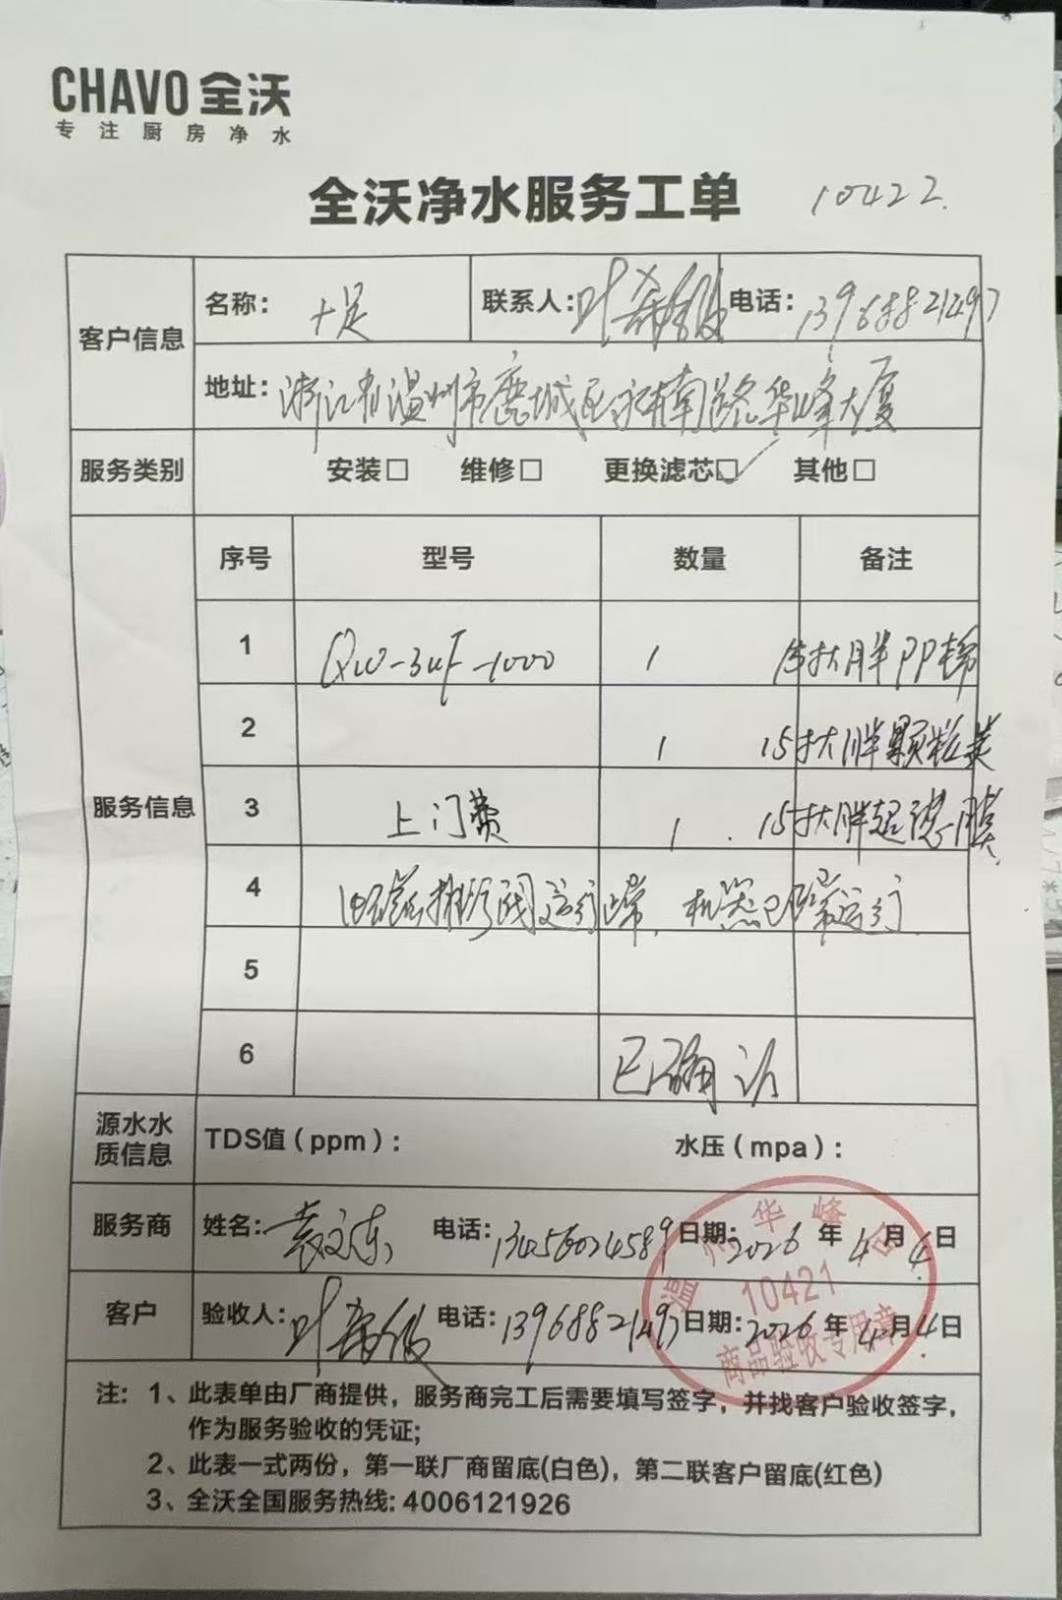 CHAVO 全沃
专注厨房净水
全沃净水服务工单 10422.
客户信息 名称: 十足 联系人: 叶 电话: 13968821497
地址: 浙江省温州市鹿城区 南路华峰大厦
服务类别 安装□ 维修□ 更换滤芯□✓ 其他□
服务信息 序号 型号 数量 备注
1 QW-3UF-1000 1 15寸大胖PP棉
2 1 15寸大胖颗粒炭
3 上门费 1 15寸大胖超滤膜
4 排污阀运行正常, 机器已正常运行
5
6 已确认
源水水质信息 TDS值(ppm): 水压(mpa):
服务商 姓名: 袁文东 电话: 13456024589 日期: 2026年4月4日
客户 验收人: 叶 电话: 13968821497 日期: 2026年4月4日
温州华峰店
10421
商品验收专用章
注: 1、此表单由厂商提供,服务商完工后需要填写签字,并找客户验收签字,
作为服务验收的凭证;
2、此表一式两份,第一联厂商留底(白色),第二联客户留底(红色)
3、全沃全国服务热线: 4006121926